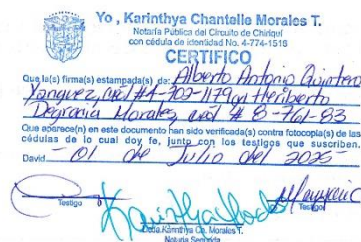 Yo, Karinthya Chantelle Morales T.
Notaria Pública del Circuito de Chiriquí
con cédula de identidad No. 4-774-1516
CERTIFICO
Que la(s) firma(s) estampada(s) de: Alberto Antonio Quintero
Yanguez, ced #4-702-1179 y Heriberto
Degracia Morales, ced # 8-761-83
Que aparece(n) en este documento han sido verificada(s) contra fotocopia(s) de las
cédulas de lo cual doy fe, junto con los testigos que suscriben.
David 01 de Julio del 2025
Testigo Testigo
Licda. Karinthya Ch. Morales T.
Notaria Segunda